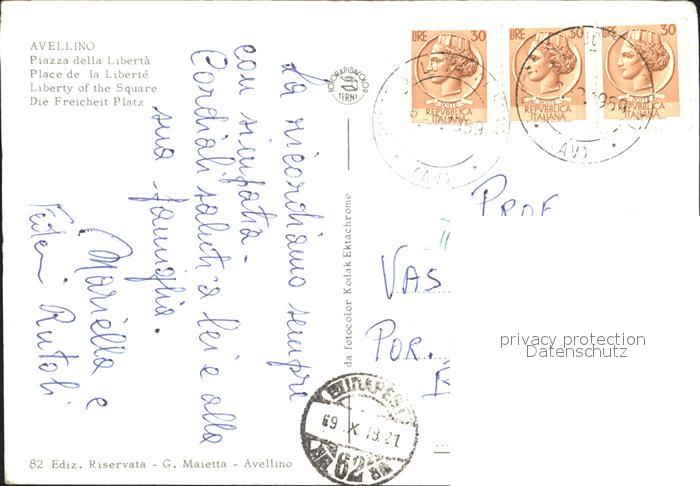 AVELLINO
Piazza della Libertà
Place de la Liberté
Liberty of the Square
Die Freicheit Platz
FOTORAPIDACOLOR
TERNI
LIRE 30
REPVBBLICA
ITALIANA
LIRE 30
REPVBBLICA
ITALIANA
LIRE 30
REPVBBLICA
ITALIANA
1969
(AV)
1969
(AV)
La ricordiamo sempre
con simpatia -
Cordiali saluti a lei e alla
sua famiglia.
Mariella e
Rutoli
da fotocolor Kodak Ektachrome
PROF
VAS
POR.
privacy protection
Datenschutz
BUDAPEST
69. X. 19. 21
62
82 Ediz. Riservata - G. Maietta - Avellino